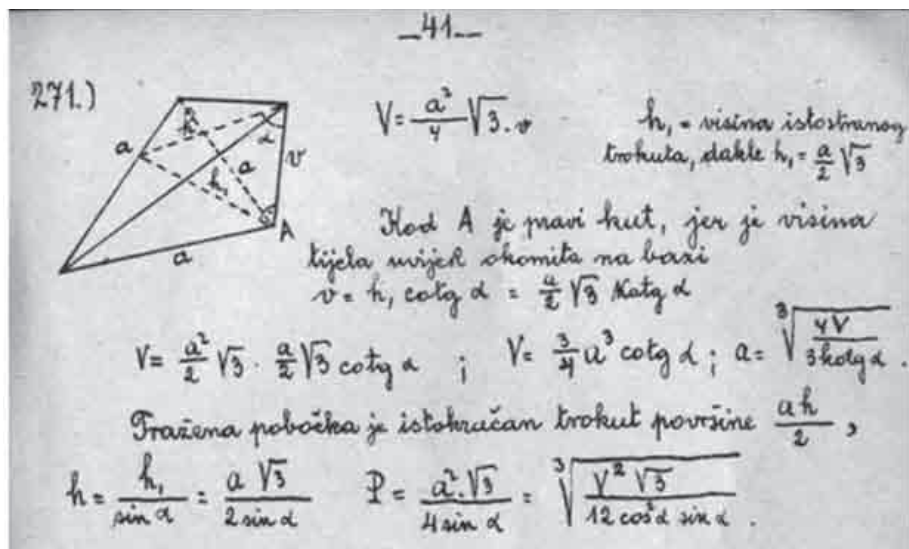 _41_
271.)
V = a²/4 √3 . v
h₁ = visina istostranog
trokuta, dakle h₁ = a/2 √3
a
h
α
v
a
h₁
A
a
Kod A je pravi kut, jer je visina
tijela uvijek okomita na bazi
v = h₁ cotg α = a/2 √3 kotg α
V = a²/2 √3 · a/2 √3 cotg α ; V = 3/4 a³ cotg α ; a = ∛(4V / 3 kotg α) .
Tražena pobočka je istokračan trokut površine ah/2 ,
h = h₁/sin α = a √3 / 2 sin α P = a² . √3 / 4 sin α = ∛(V² √3 / 12 cos² α sin α) .